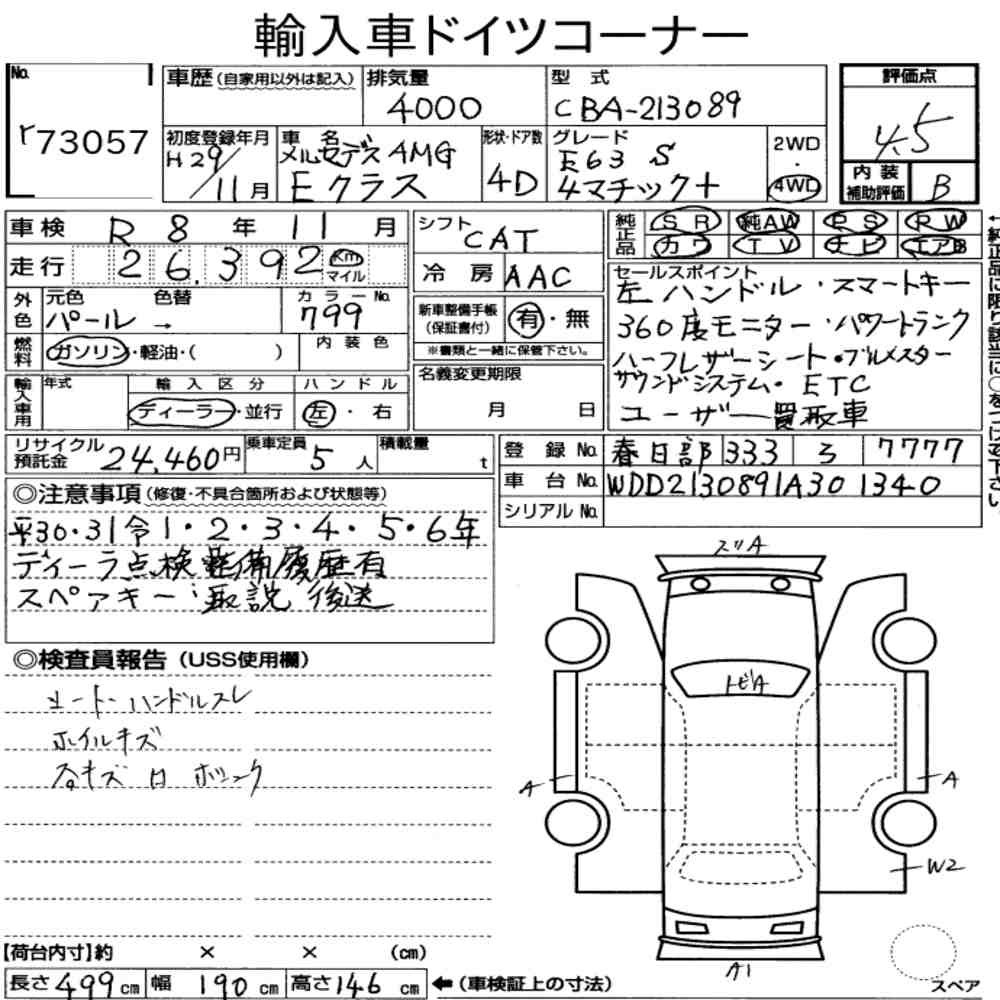 輸入車ドイツコーナー
No.
r73057
車歴(自家用以外は記入)
排気量
4000
型式
CBA-213089
評価点
4.5
初度登録年月
H29/11月
車名
メルセデスAMG
Eクラス
形状・ドア数
4D
グレード
E63 S
4マチック+
2WD
・
4WD
内装
補助評価
B
車検 R8年11月
走行 26,392 Km
マイル
外色
元色
パール →
色替
カラーNo.
799
燃料
ガソリン・軽油・( )
内装色
輸入車用
年式
輸入区分
ディーラー・並行
ハンドル
左・右
シフト
CAT
冷房 AAC
新車整備手帳
(保証書付)
有・無
※書類と一緒に保管下さい。
名義変更期限
月 日
純正品
SR 純AW PS PW
カワ TV ナビ エアB
←純正品に限り該当に○をつけて下さい。
セールスポイント
左ハンドル・スマートキー
360度モニター・パワートランク
ハーフレザーシート・ブルメスター
サウンドシステム・ETC
ユーザー買取車
リサイクル
預託金
24,460円
乗車定員
5人
積載量
t
登録No. 春日部 333 ろ 7777
車台No. WDD2130891A301340
シリアルNo.
◎注意事項(修復・不具合箇所および状態等)
平30・31令1・2・3・4・5・6年
ディーラ点検整備履歴有
スペアキー・取説 後送
◎検査員報告(USS使用欄)
シート・ハンドルスレ
ホイルキズ
キズ
スリA
トビA
A
A
W2
A1
スペア
【荷台内寸】約 × × (cm)
長さ499cm 幅190cm 高さ146cm ←(車検証上の寸法)